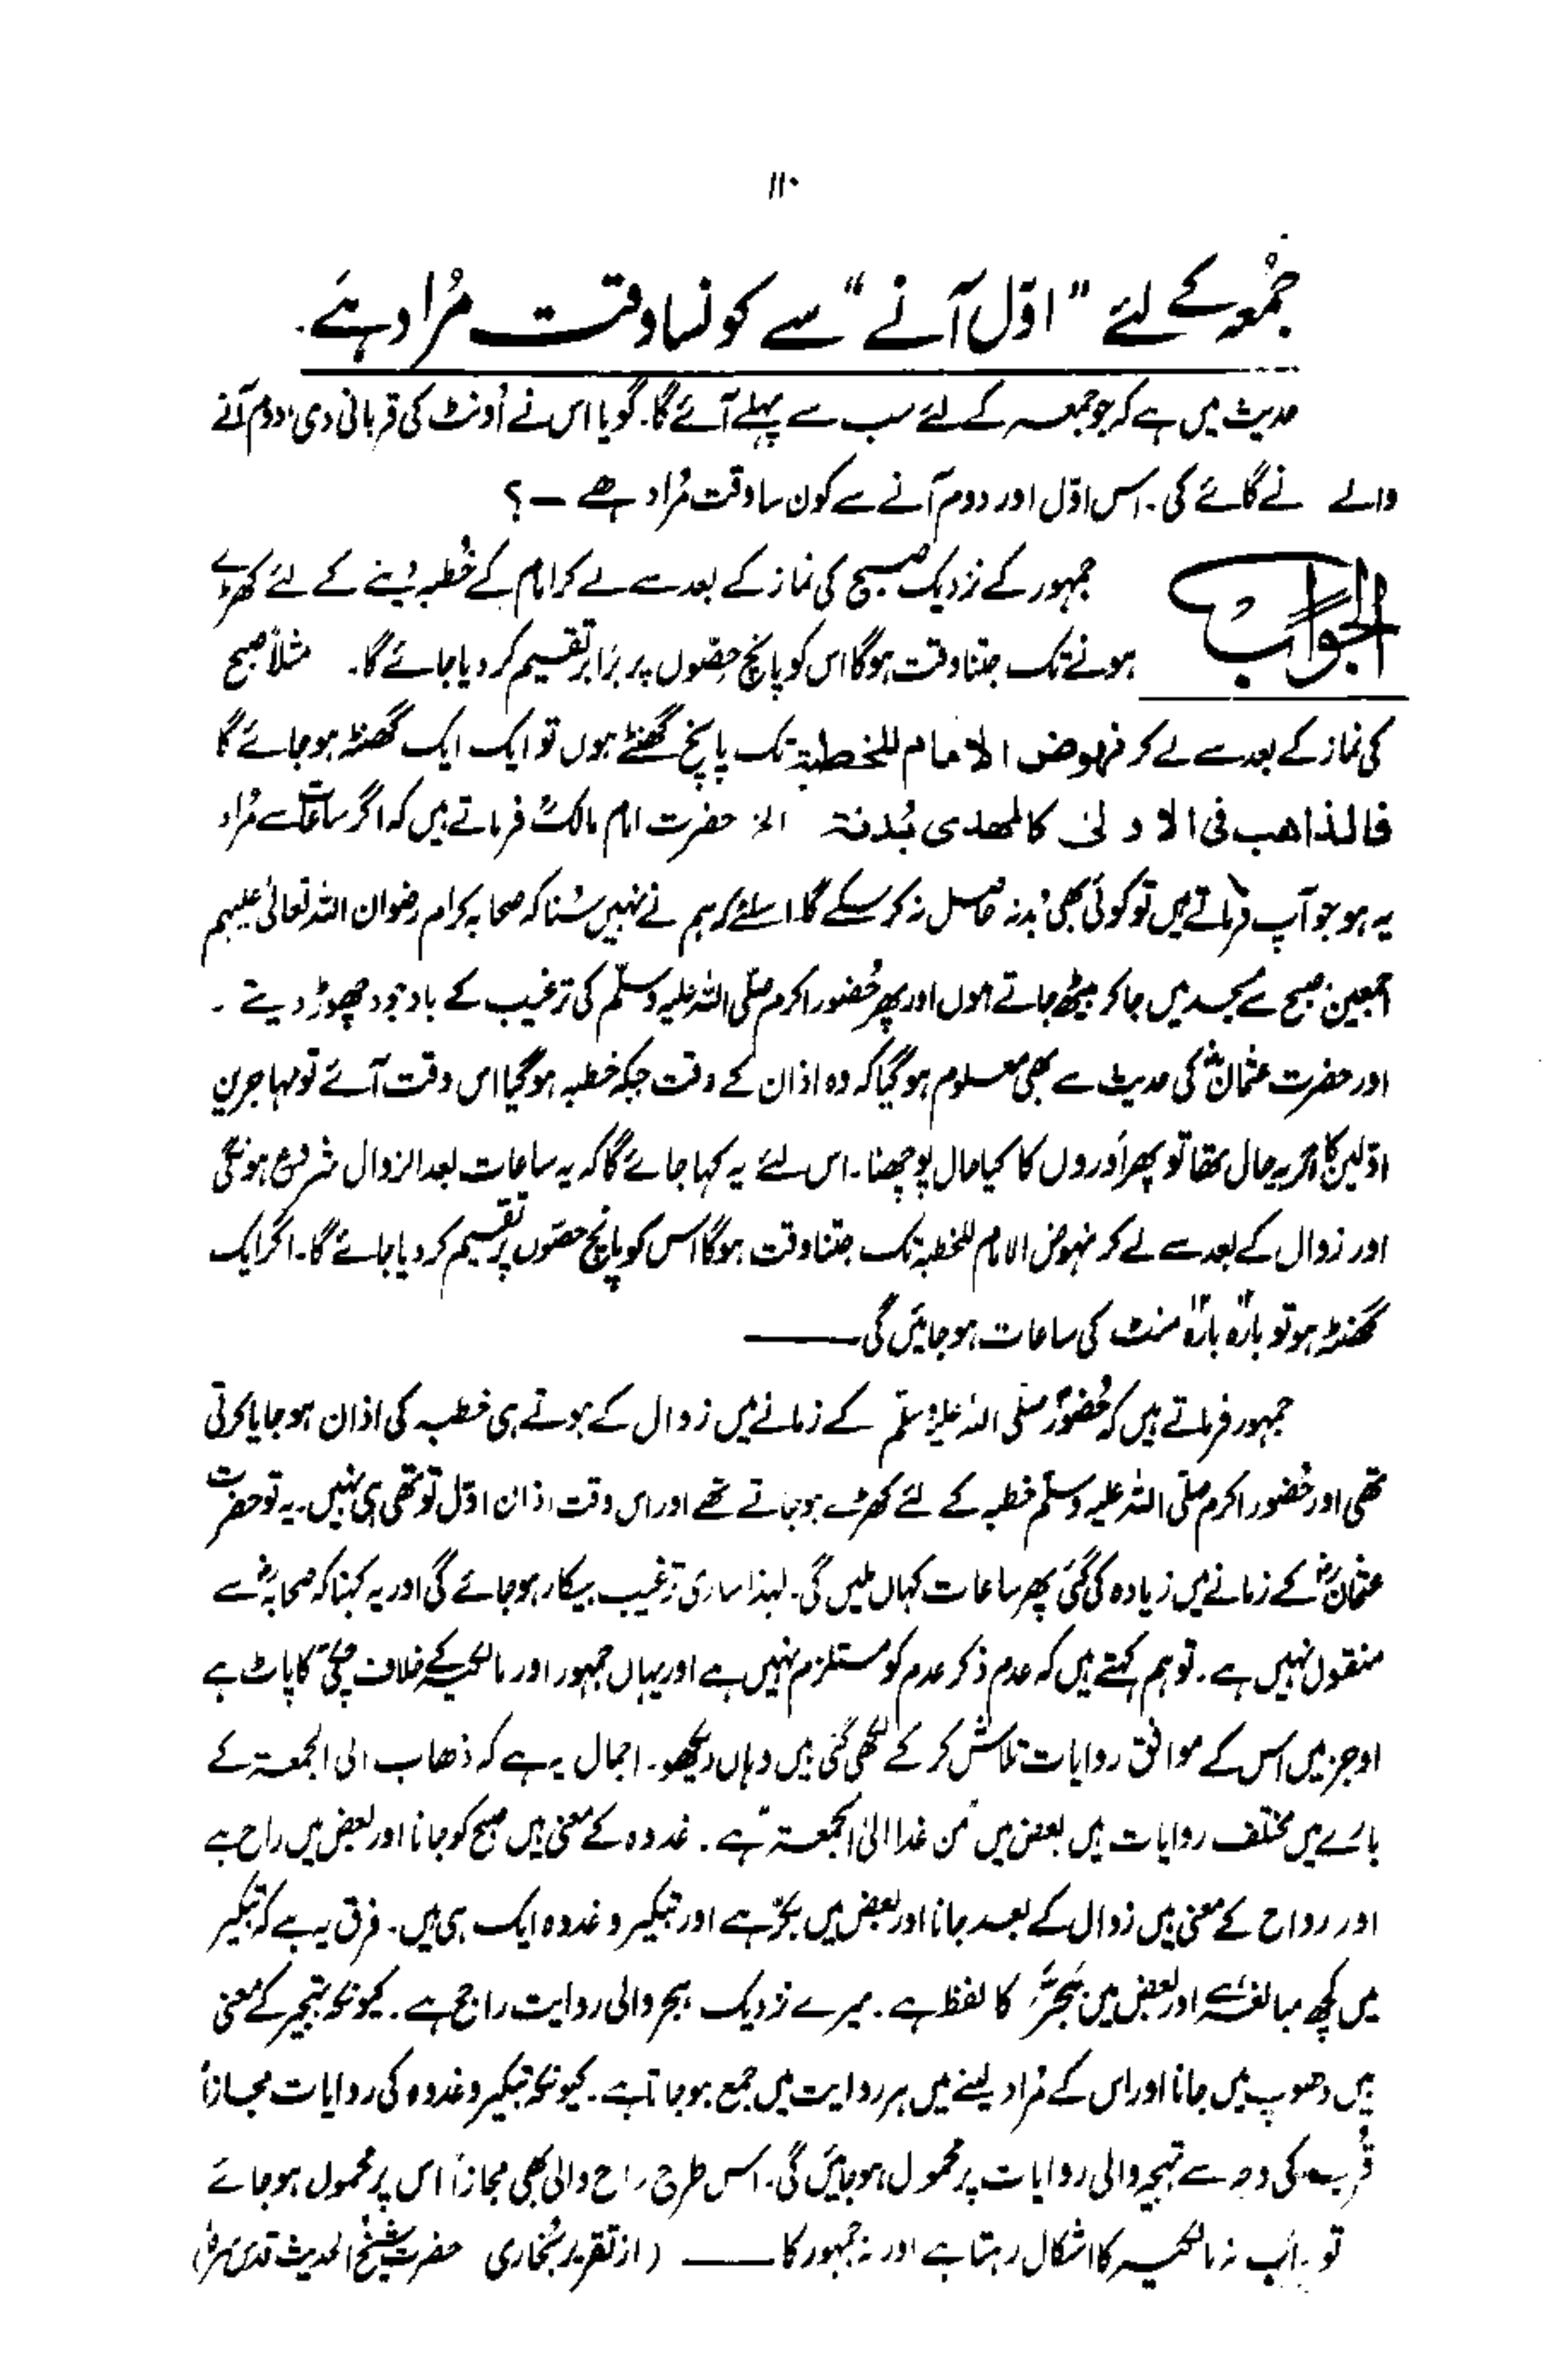 ۱۱۰
جمُعہ کے لئے "اوّل آنے" سے کونسا وقت مُراد ہے۔
حدیث میں ہے کہ جو جمعہ کے لئے سب سے پہلے آئے گا۔ گویا اس نے اُونٹ کی قربانی دی، دوم آنے
والے نے گائے کی۔ اس اوّل اور دوم آنے سے کون سا وقت مُراد ہے ــ؟
الجوابُ
جمہور کے نزدیک صبح کی نماز کے بعد سے لے کر امام کے خُطبہ دینے کے لئے کھڑے
ہونے تک جتنا وقت ہوگا اس کو پانچ حِصّوں پر برابر تقسیم کر دیا جائے گا۔ مثلاً صبح
کی نماز کے بعد سے لے کر نهوض الامام للخطبة تک پانچ گھنٹے ہوں تو ایک ایک گھنٹہ ہو جائے گا
فالذاهب فى الاولىٰ كالمهدى بُدنة الخ حضرت امام مالکؒ فرماتے ہیں کہ اگر ساعات سے مُراد
یہ ہو جو آپ فرماتے ہیں تو کوئی بھی بُدنہ حاصل نہ کر سکے گا۔ اسلئے کہ ہم نے نہیں سُنا کہ صحابہ کرام رضوان اللہ تعالیٰ علیہم
اجمعین صبح سے مسجد میں جا کر بیٹھ جاتے ہوں اور پھر حُضور اکرم صلّی اللہ علیہ وسلّم کی ترغیب کے باوجود چھوڑ دیتے۔
اور حضرت عثمانؓ کی حدیث سے بھی معلوم ہو گیا کہ وہ اذان کے وقت جبکہ خطبہ ہو گیا اس وقت آئے تو مہاجرین
اوّلین کا اگر یہ حال تھا تو پھر اَوروں کا کیا حال پوچھنا۔ اس لئے یہ کہا جائے گا کہ یہ ساعات بعد الزوال شروع ہونگی
اور زوال کے بعد سے لے کر نہوض الامام للخطبہ تک جتنا وقت ہوگا اس کو پانچ حصّوں پر تقسیم کر دیا جائے گا۔ اگر ایک
گھنٹہ ہو تو بارہ بارہ منٹ کی ساعات ہو جائیں گی ــــــ
جمہور فرماتے ہیں کہ حُضورؐ صلّی اللہ علیہ وسلّم کے زمانے میں زوال کے ہوتے ہی خطبہ کی اذان ہو جایا کرتی
تھی اور حُضور اکرم صلّی اللہ علیہ وسلّم خطبہ کے لئے کھڑے ہو جاتے تھے اور اس وقت اذان اوّل تو تھی ہی نہیں۔ یہ تو حضرت
عثمانؓ کے زمانے میں زیادہ کی گئی پھر ساعات کہاں ملیں گی۔ لہٰذا ساری ترغیب بیکار ہو جائے گی اور یہ کہنا کہ صحابہؓ سے
منقول نہیں ہے۔ تو ہم کہتے ہیں کہ عدم ذکر عدم کو مستلزم نہیں ہے اور یہاں جمہور اور مالکیہ کے خلاف چکّی کا پاٹ ہے
اوجز میں اس کے موافق روایات تلاش کر کے لکھی گئی ہیں وہاں دیکھو۔ اجمال یہ ہے کہ ذھاب الی الجمعۃ کے
بارے میں مختلف روایات ہیں بعض میں "من غدا الی الجمعۃ" ہے۔ غدوہ کے معنیٰ ہیں صبح کو جانا اور بعض میں راح ہے
اور رواح کے معنیٰ ہیں زوال کے بعد جانا اور بعض میں بکّر ہے اور تبکیر و غدوہ ایک ہی ہیں۔ فرق یہ ہے کہ تبکیر
میں کچھ مبالغہ ہے اور بعض میں ہَجَّرَ کا لفظ ہے۔ میرے نزدیک ہجر والی روایت راجح ہے۔ کیونکہ تہجیر کے معنیٰ
ہیں دھوپ میں جانا اور اس کے مُراد لینے میں ہر روایت میں جمع ہو جاتا ہے۔ کیونکہ تبکیر و غدوہ کی روایات مجازاً
قُرب کی وجہ سے تہجیر والی روایات پر محمول ہو جائیں گی۔ اس طرح راح والی بھی مجازاً اس پر محمول ہو جائے
تو اَب نہ مالکیہ کا اشکال رہتا ہے اور نہ جمہور کا ــــــ (از تقریر بُخاری حضرت شیخ الحدیث قدس سرہٗ)